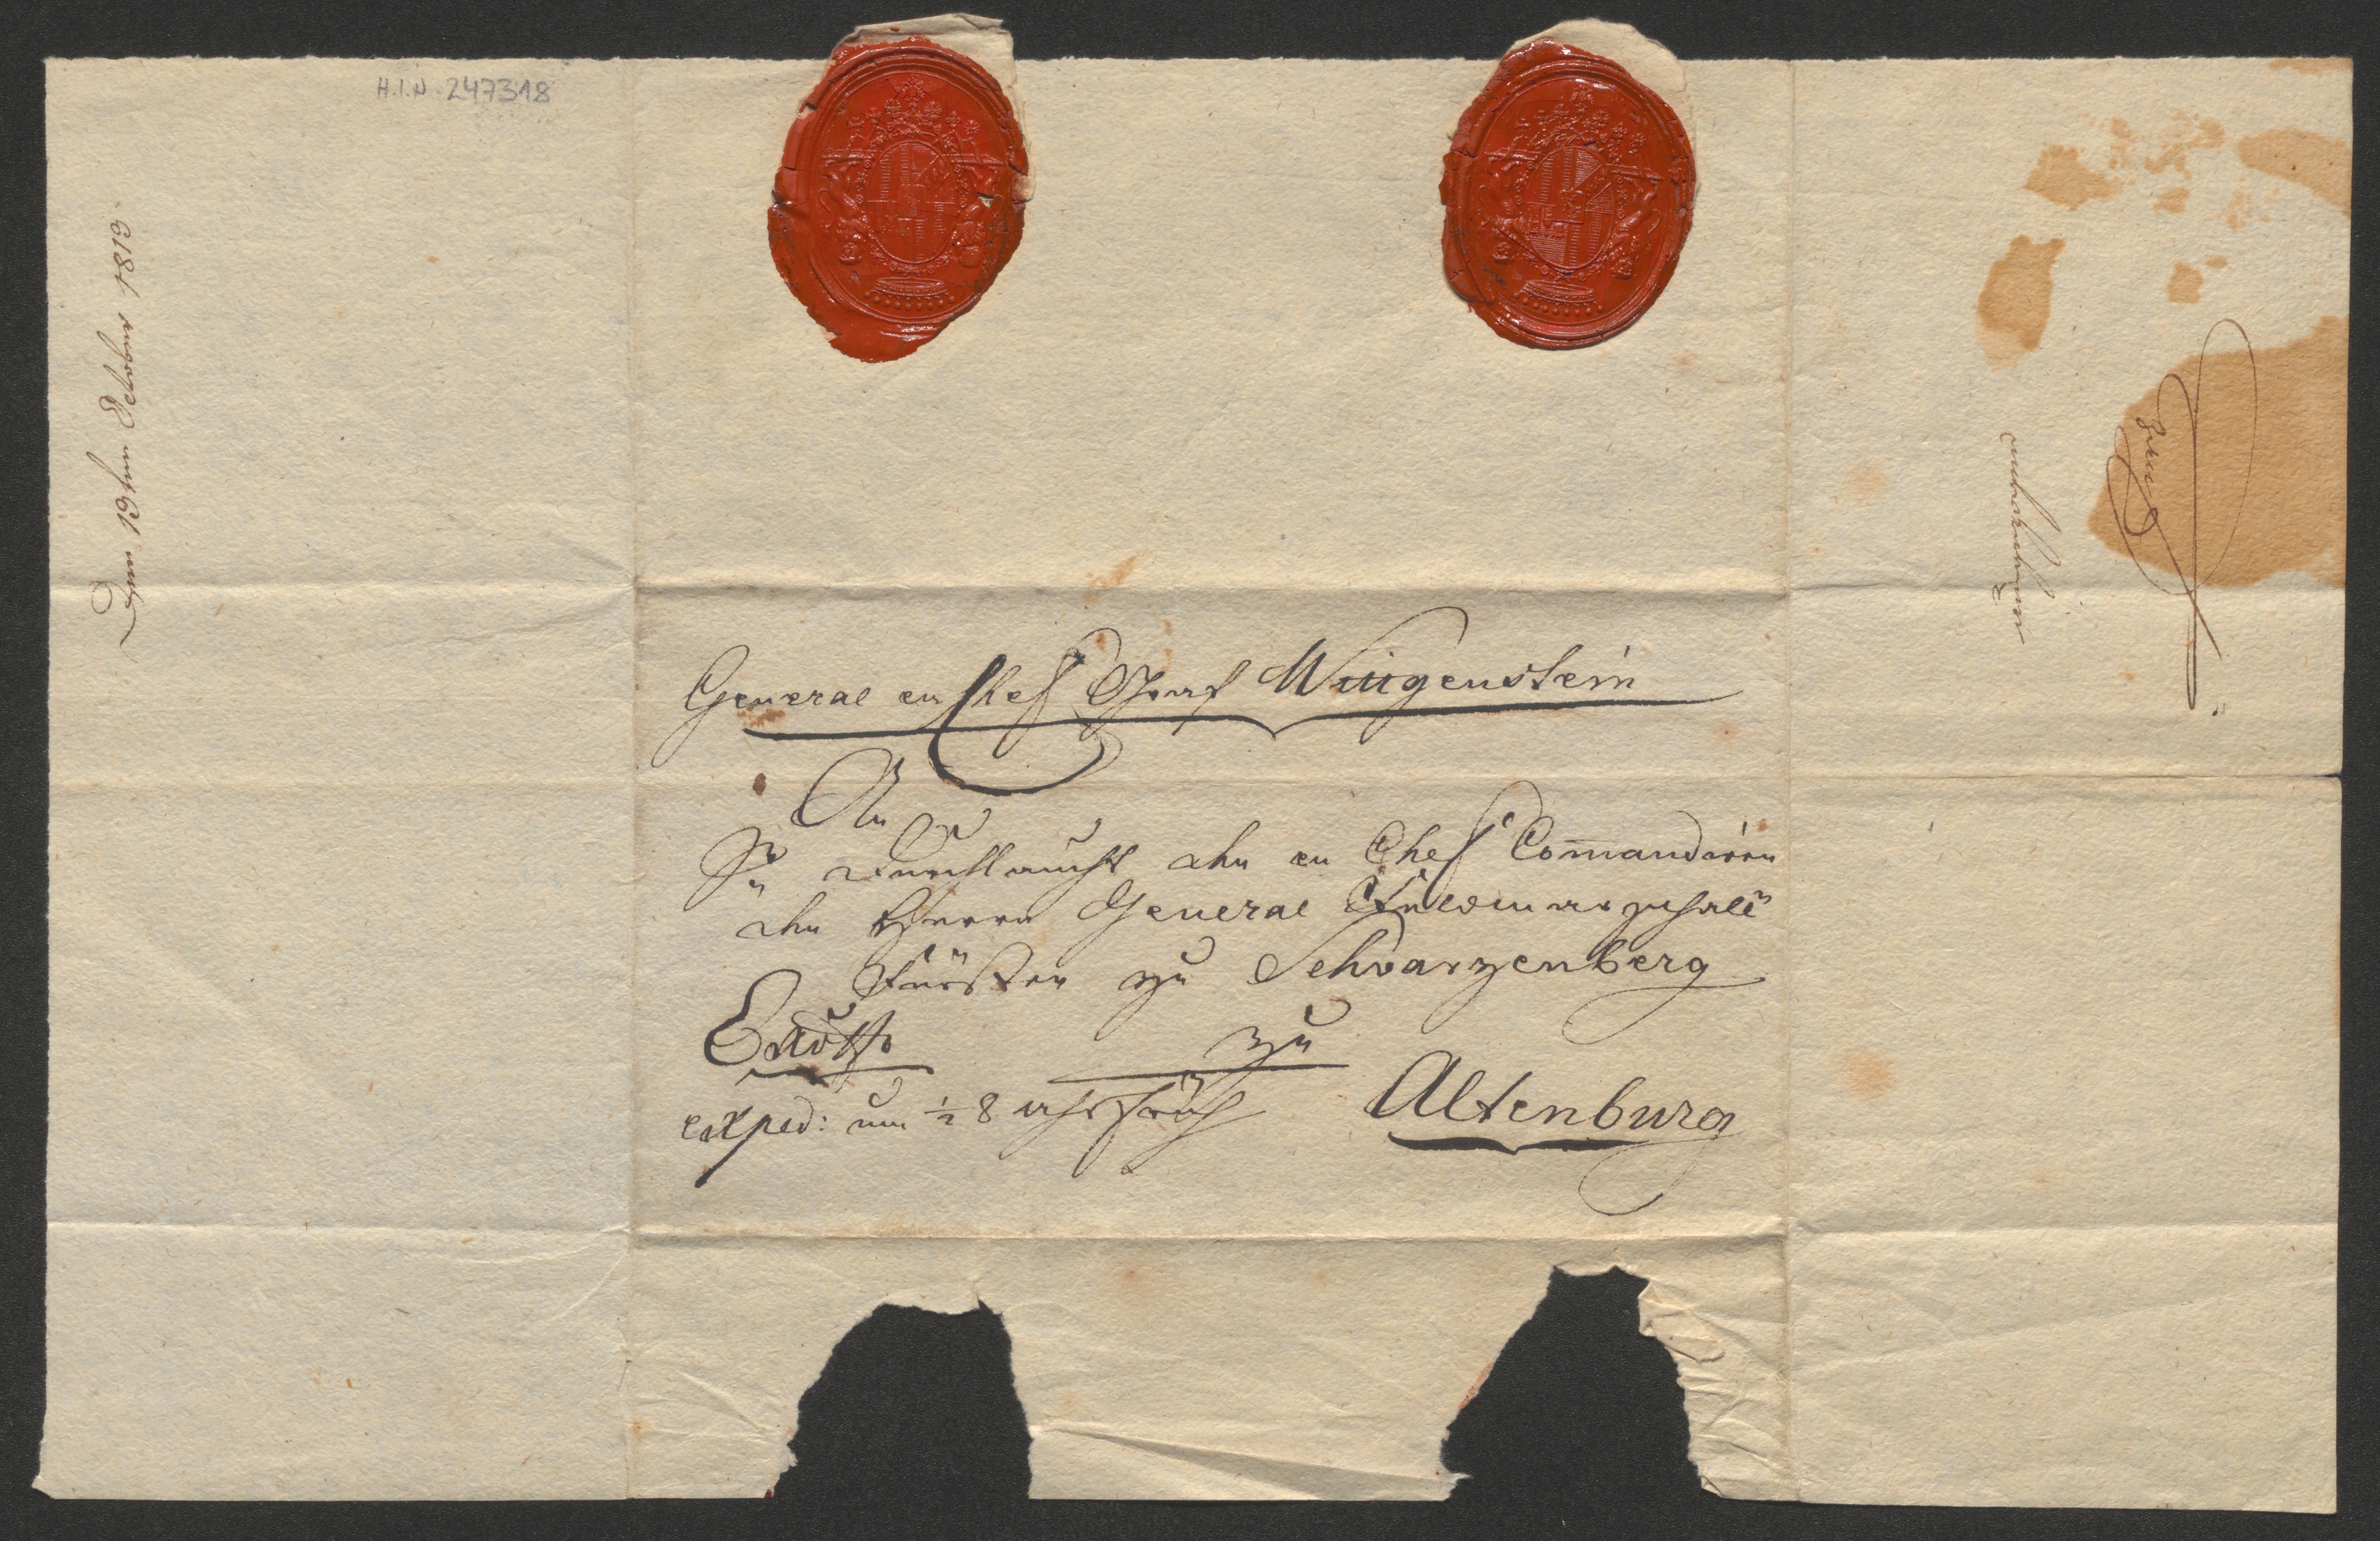 H.I.N. 247318
Den 19ten October 1813
General en Chef Graf Wittgenstein
An
Sr Durchlaucht den en Chef Com̅andiren
den Herrn General Feldmarschall
Fürsten zu Schwarzenberg
zu
exped: um ½ 8 uhr früh
Altenburg